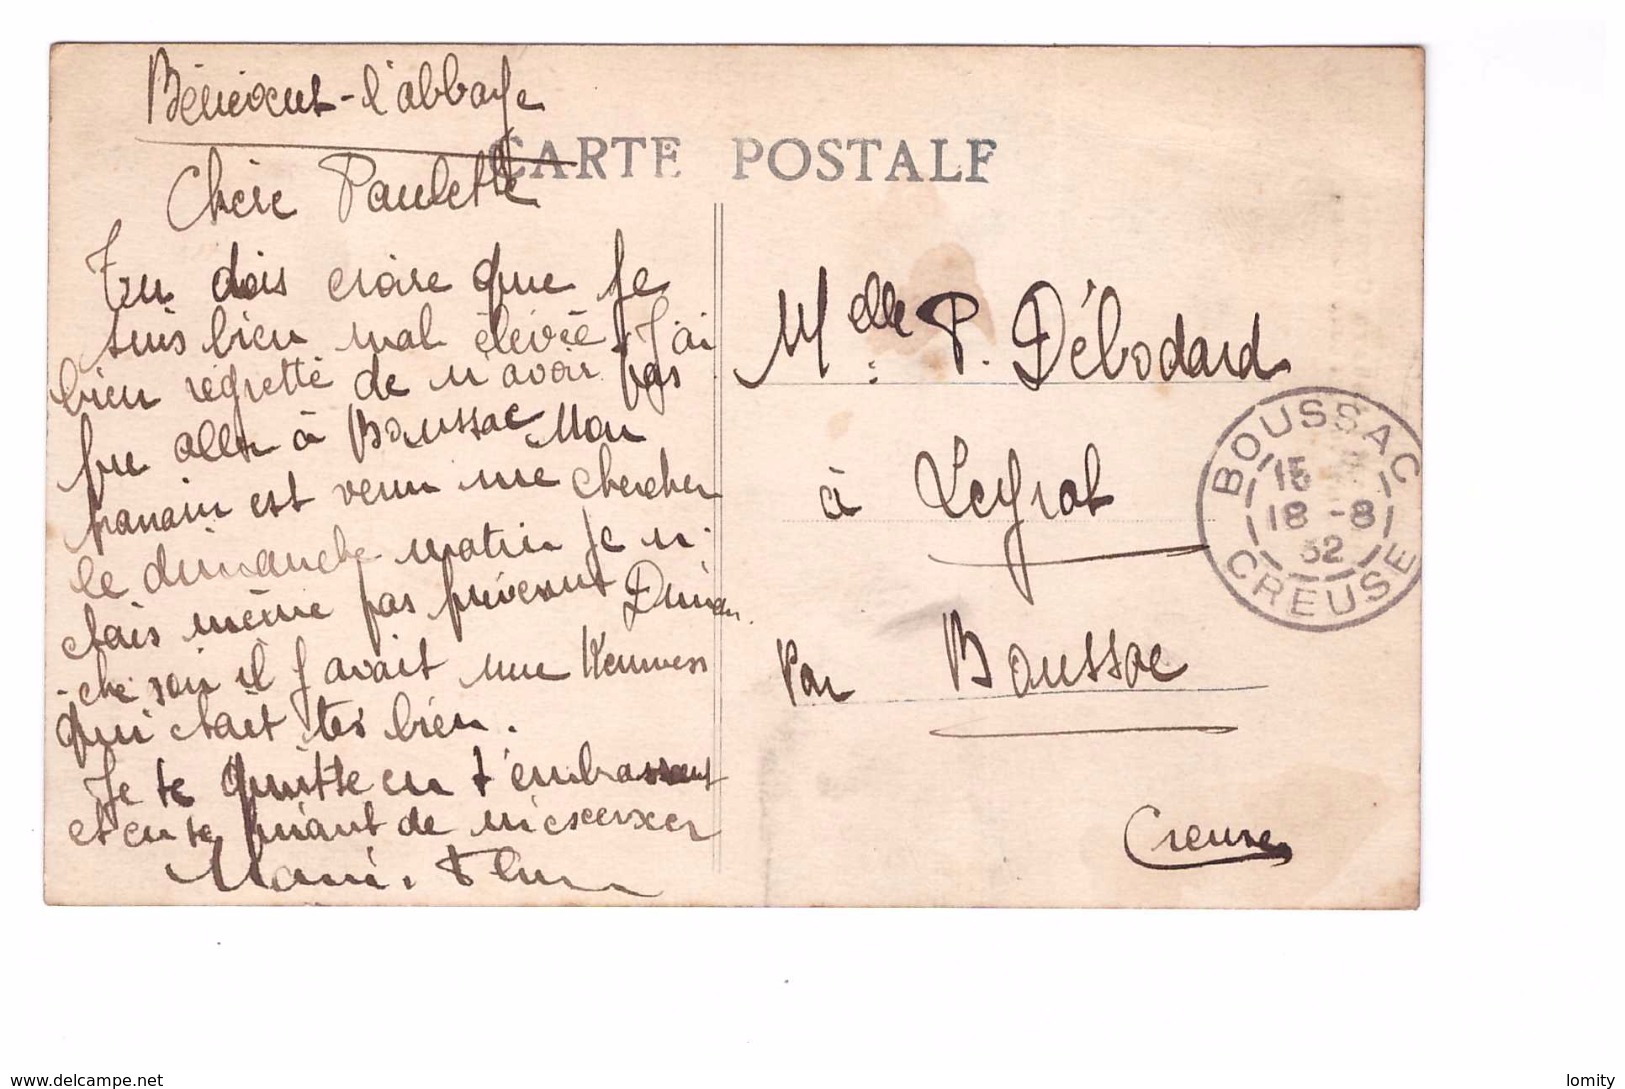 Bénévent-l'abbaye
CARTE POSTALE
Chère Paulette
Tu dois croire que je
suis bien mal élevée, j'ai
bien regretté de n'avoir pas
pu aller à Boussac Mon
parrain est venu me chercher
le dimanche matin je n'
étais même pas prévenue Diman
-che soir il y avait une Kermess
qui était très bien.
Je te quitte en t'embrassant
et en te priant de m'excuser
Melle P. Débodard
à Leyrat
par Boussac
Creuse
BOUSSAC
15
18-8
32
CREUSE
www.delcampe.net
lomity